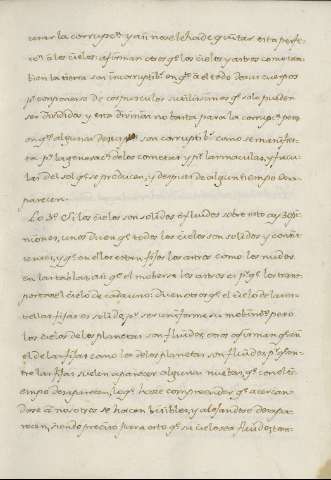 corar la corrupcⁿ y aũ no se le ha de quitar esta perfe-
à los cielos; afirman otros qᵉ los cielos y astros como tam-
bien la tierra son incorruptibˢ en qᵗᵒ à el todo de sus cuerpos
pʳ componerse de corpusculos sutilisimos qᵉ solo pueden
ser divididos y esta division no basta para la corrupcⁿ pero
en qᵗᵒ algunas son corruptibˢ como se manifies-
ta pʳ la generacⁿ de los cometas y pʳ las maculas, y facu-
las del sol qᵉ se producen, y despues de algun tiempo desa-
parecen.
Lo 2º. Si los cielos son solidos ò fluidos sobre esto ay 3 opi-
niones, unos dicen qᵉ todos los cielos son solidos y
y qᵉ en ellos estan fijos los astros como los nudos
en las tablas, asi qᵉ el moberse los astros es pʳ qᵉ los trans-
porta el cielo de cada uno: dicen otros qᵉ el cielo de las es-
trellas fijas es solido, pʳ ser uniforme su mobimᵗᵒ pero
los cielos de los planetas son fluidos, otros afirman qᵉ asi
el de las fijas como los de los planetas son fluidos, pʳ qᵉ en-
tre las fijas suelen aparecer algunas nuebas, qᵉ con el ti-
empo desaparecen, lo qᵉ hace comprender qᵉ acercan-
dose à nosotros se hacen bisibles, y alejandose desapa-
recen, siendo preciso para esto qᵉ su cielo sea fluido;